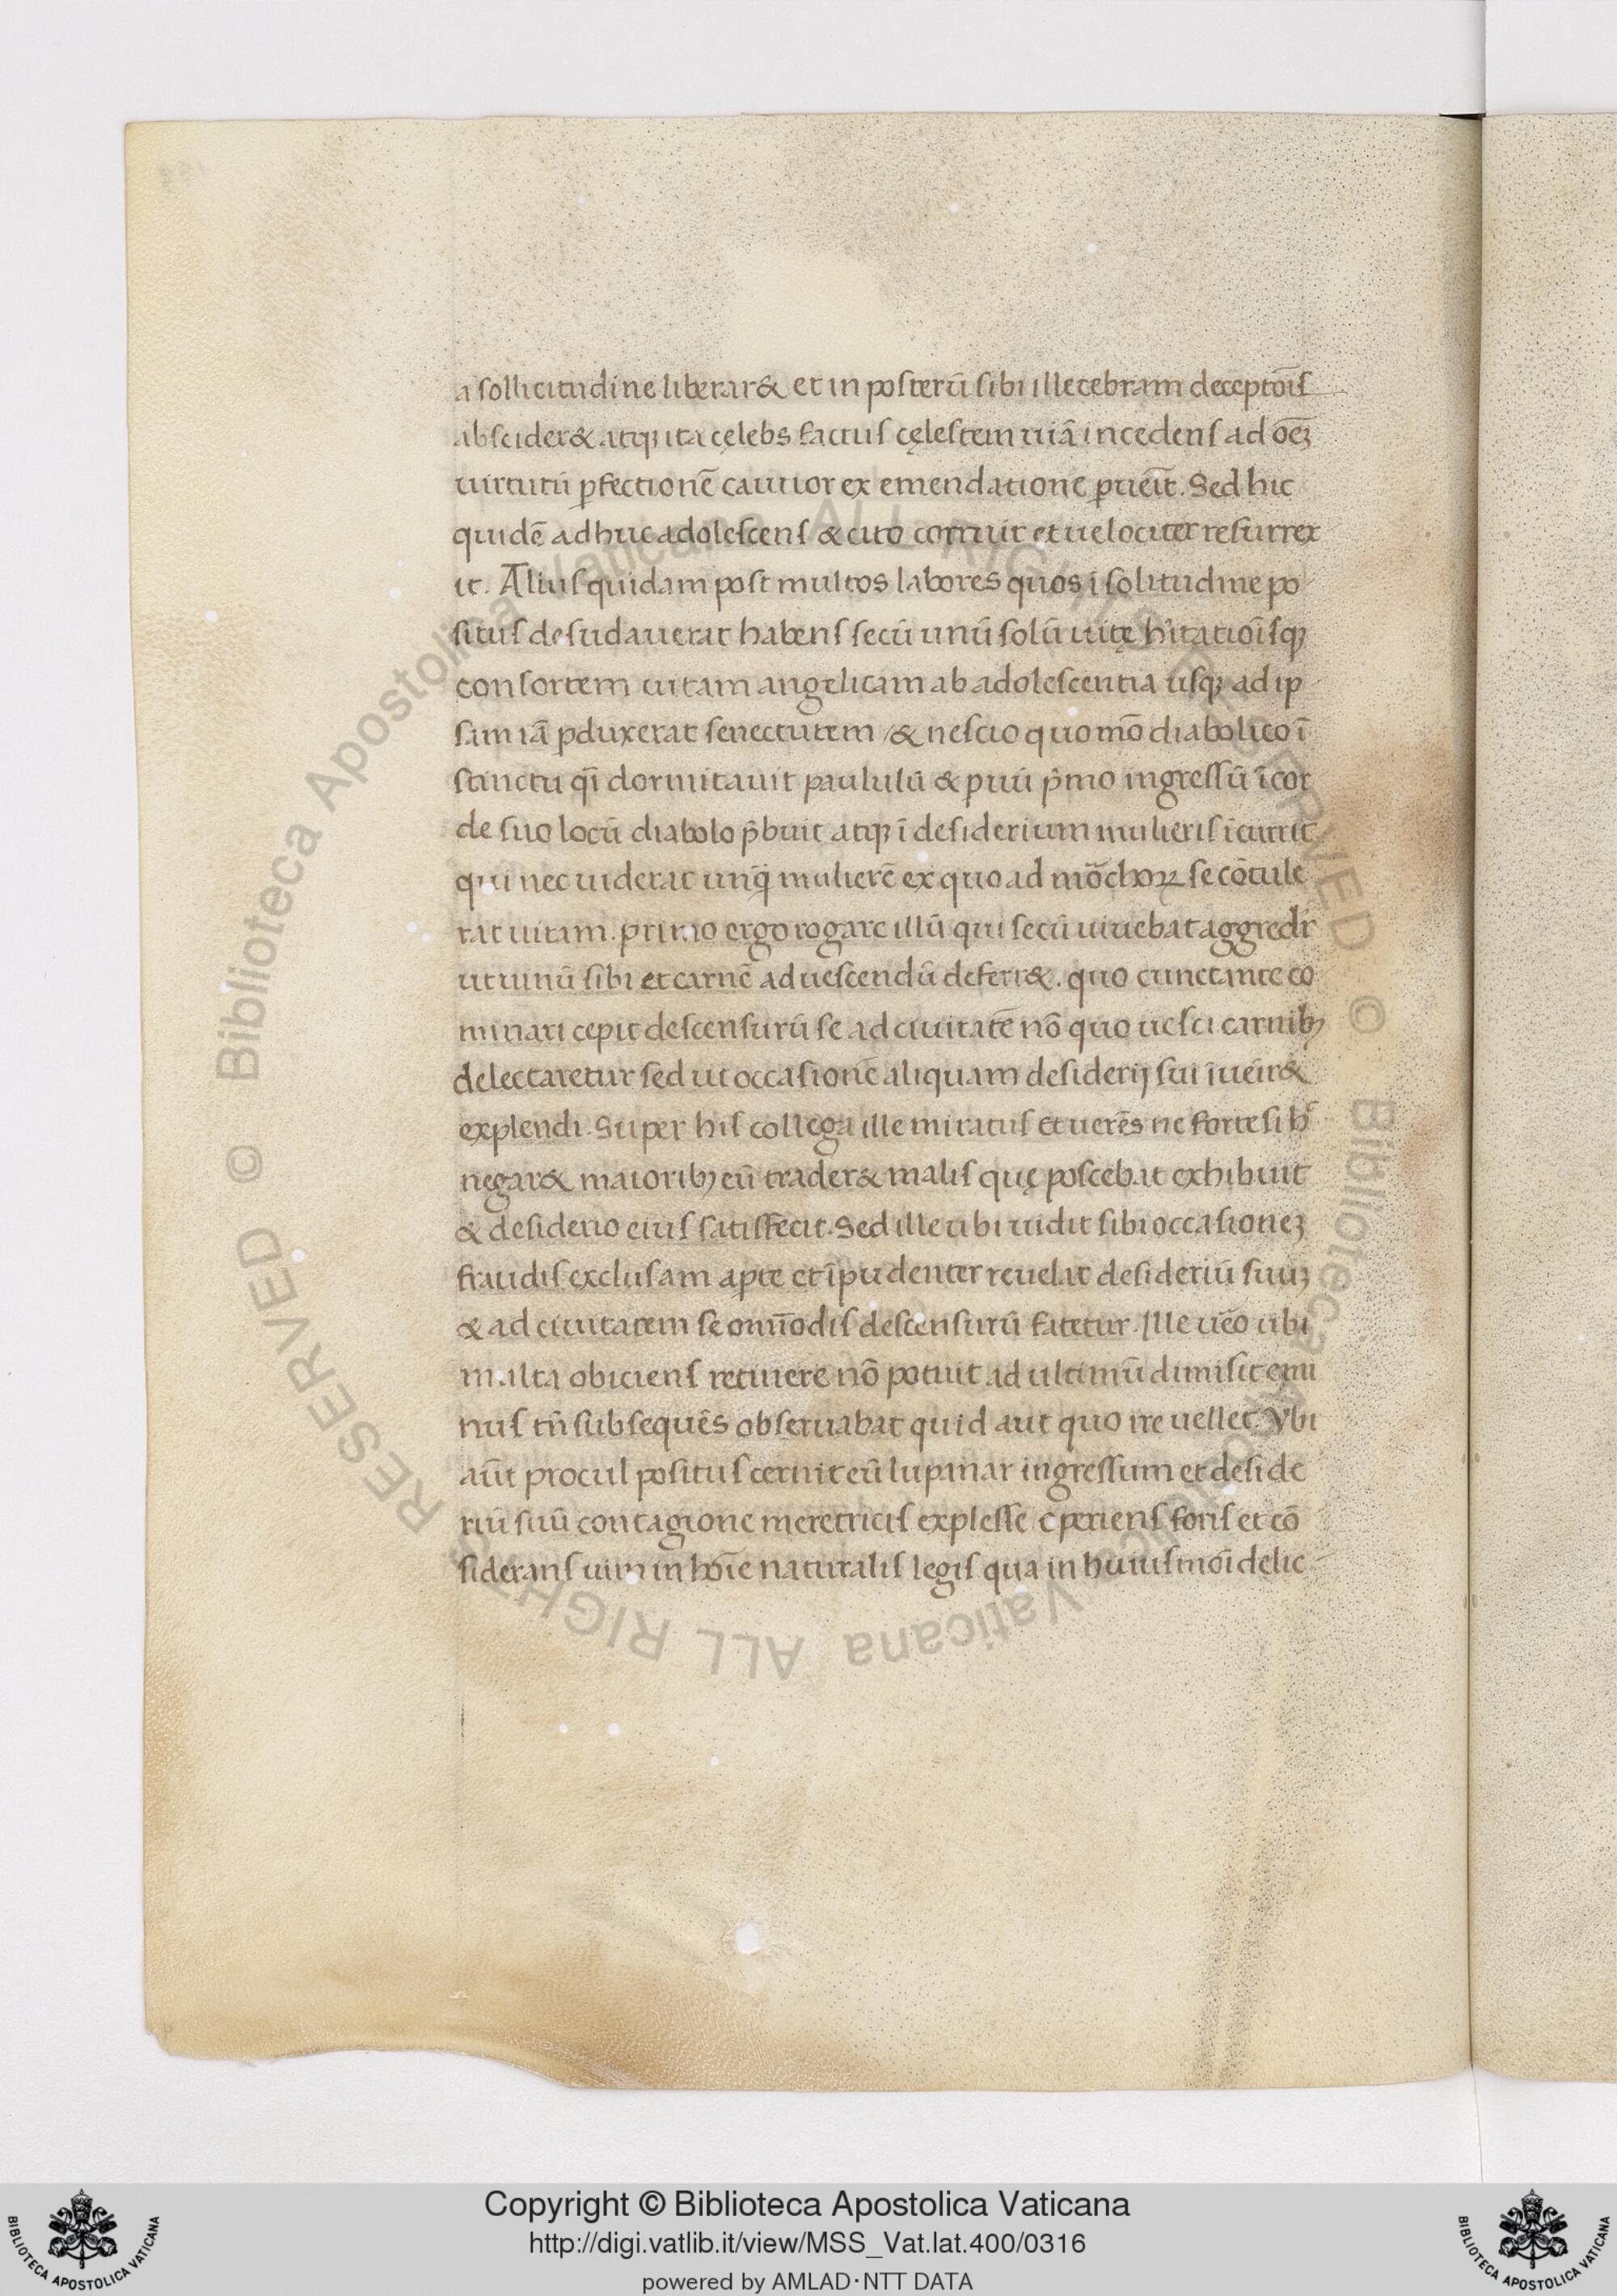 a sollicitudine liberar& et in posterū sibi illecebram deceptōis
abscider& atqꝫ ita cęlebs factus cęlestem uiā incedens ad oēꝫ
uirtutū ꝑfectionē cautior ex emendatione ꝑueīt. Sed hic
quidē adhuc adolescens & cito corruit et uelociter resurrex
it. Alius quidam post multos labores quos ī solitudine po
situs desudauerat habens secū unū solū uitę h'itatiōisqꝫ
consortem uitam angelicam ab adolescentia usqꝫ ad ip
sam iā ꝓduxerat senectutem / & nescio quomō diabolico ī
stinctu qī dormitauit paululū & ꝑuū p̄mo ingressū ī cor
de suo locū diabolo p̄buit atqꝫ ī desiderium mulieris īcurrit
qui nec uiderat unq̄ mulierē ex quo ad mōchoꝝ se cōtule
rat uitam. primo ergo rogare illū qui secū uiuebat aggredr̄
ut uinū sibi et carnē ad uescendū deferr&. quo cunctante co
minari cepit descensurū se ad ciuitatē nō quo uesci carnibꝫ
delectaretur sed ut occasionē aliquam desiderij sui īueir&
explendi. Super his collega ille miratus et uerēs ne forte si h̵
negar& maioribꝫ eū trader& malis quę poscebat exhibuit
& desiderio eius satisfecit. Sed ille ubi uidit sibi occasioneꝫ
fraudis exclusam apte et īpudenter reuelat desideriū suuꝫ
& ad ciuitatem se omīodis descensurū fatetur. Ille ūeo ubi
multa obiciens retinere nō potuit ad ultimū dimisit emi
nus tn̄ subsequēs obseruabat quid aut quo ire uellet. Vbi
aūt procul positus cernit eū lupanar ingressum et deside
riū suū contagione meretricis explesse ꝯperiens foris et cō
siderans uim in hoīe naturalis legis qua in huiusmōi delic
Biblioteca Apostolica Vaticana ALL RIGHTS RESERVED ©
Copyright © Biblioteca Apostolica Vaticana
http://digi.vatlib.it/view/MSS_Vat.lat.400/0316
powered by AMLAD·NTT DATA
BIBLIOTECA APOSTOLICA VATICANA
BIBLIOTECA APOSTOLICA VATICANA